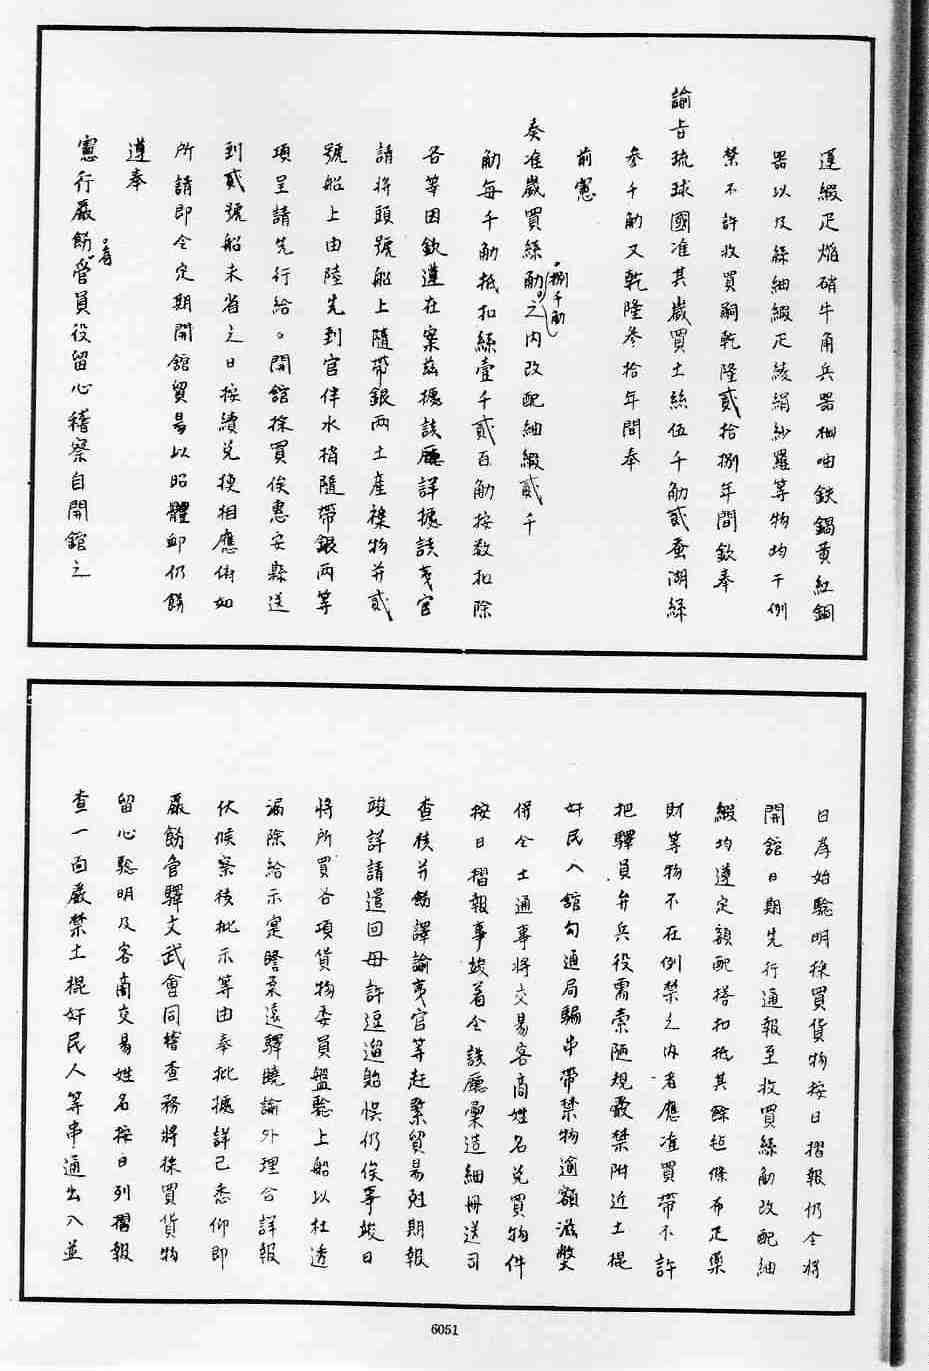 違緞疋焰硝牛角兵器柚呫鉄鍋黃紅銅
器以及絲紬緞疋綾絹紗羅等物均干例
禁不許收買嗣乾隆貳拾捌年間欽奉
諭旨琉球國准其歲買土絲伍千觔貳蚕湖絲
參千觔又乾隆參拾年間奉
前憲
奏准歲買絲觔之内改配紬緞貳千
捌千觔
觔每千觔抵扣絲壹千貳百觔按数扣除
各等因欽遵在案茲據該廳詳據該夷官
請將頭號船上隨帶銀两土産襍物并貳
號船上由陸先到官伴水梢隨帶銀两等
項呈請先行給。開舘採買俟惠安縣送
到貳號船未省之日按續兑換相應俯如
所請即令定期開舘貿易以昭體卹仍飭
遵奉
憲行嚴飭管員役留心稽察自開舘之
日為始驗明採買貨物按日摺報仍令將
開舘日期先行通報至收買絲觔改配紬
緞均遵定額配搭扣抵其餘毡條布疋藥
財等物不在例禁之内者應准買帶不許
把驛員弁兵役需索陋規嚴禁附近土棍
奸民入舘勾通局騙串帶禁物逾額滋弊
併令土通事將交易客商姓名兑買物件
按日摺報事竣着令該廳彙造細冊送司
查核并飭譯諭夷官等赶緊貿易尅期報
竣詳請遣回毋許逗遛貽悞仍俟事竣日
將所買各項貨物委員盤驗上船以杜透
漏除給示寔瞻柔遠驛曉諭外理合詳報
伏候察核批示等由奉批據詳已悉仰即
嚴飭管驛文武會同稽查務將採買貨物
留心驗明及客商交易姓名按日列摺報
查一面嚴禁土棍奸民人等串通出入並
6051